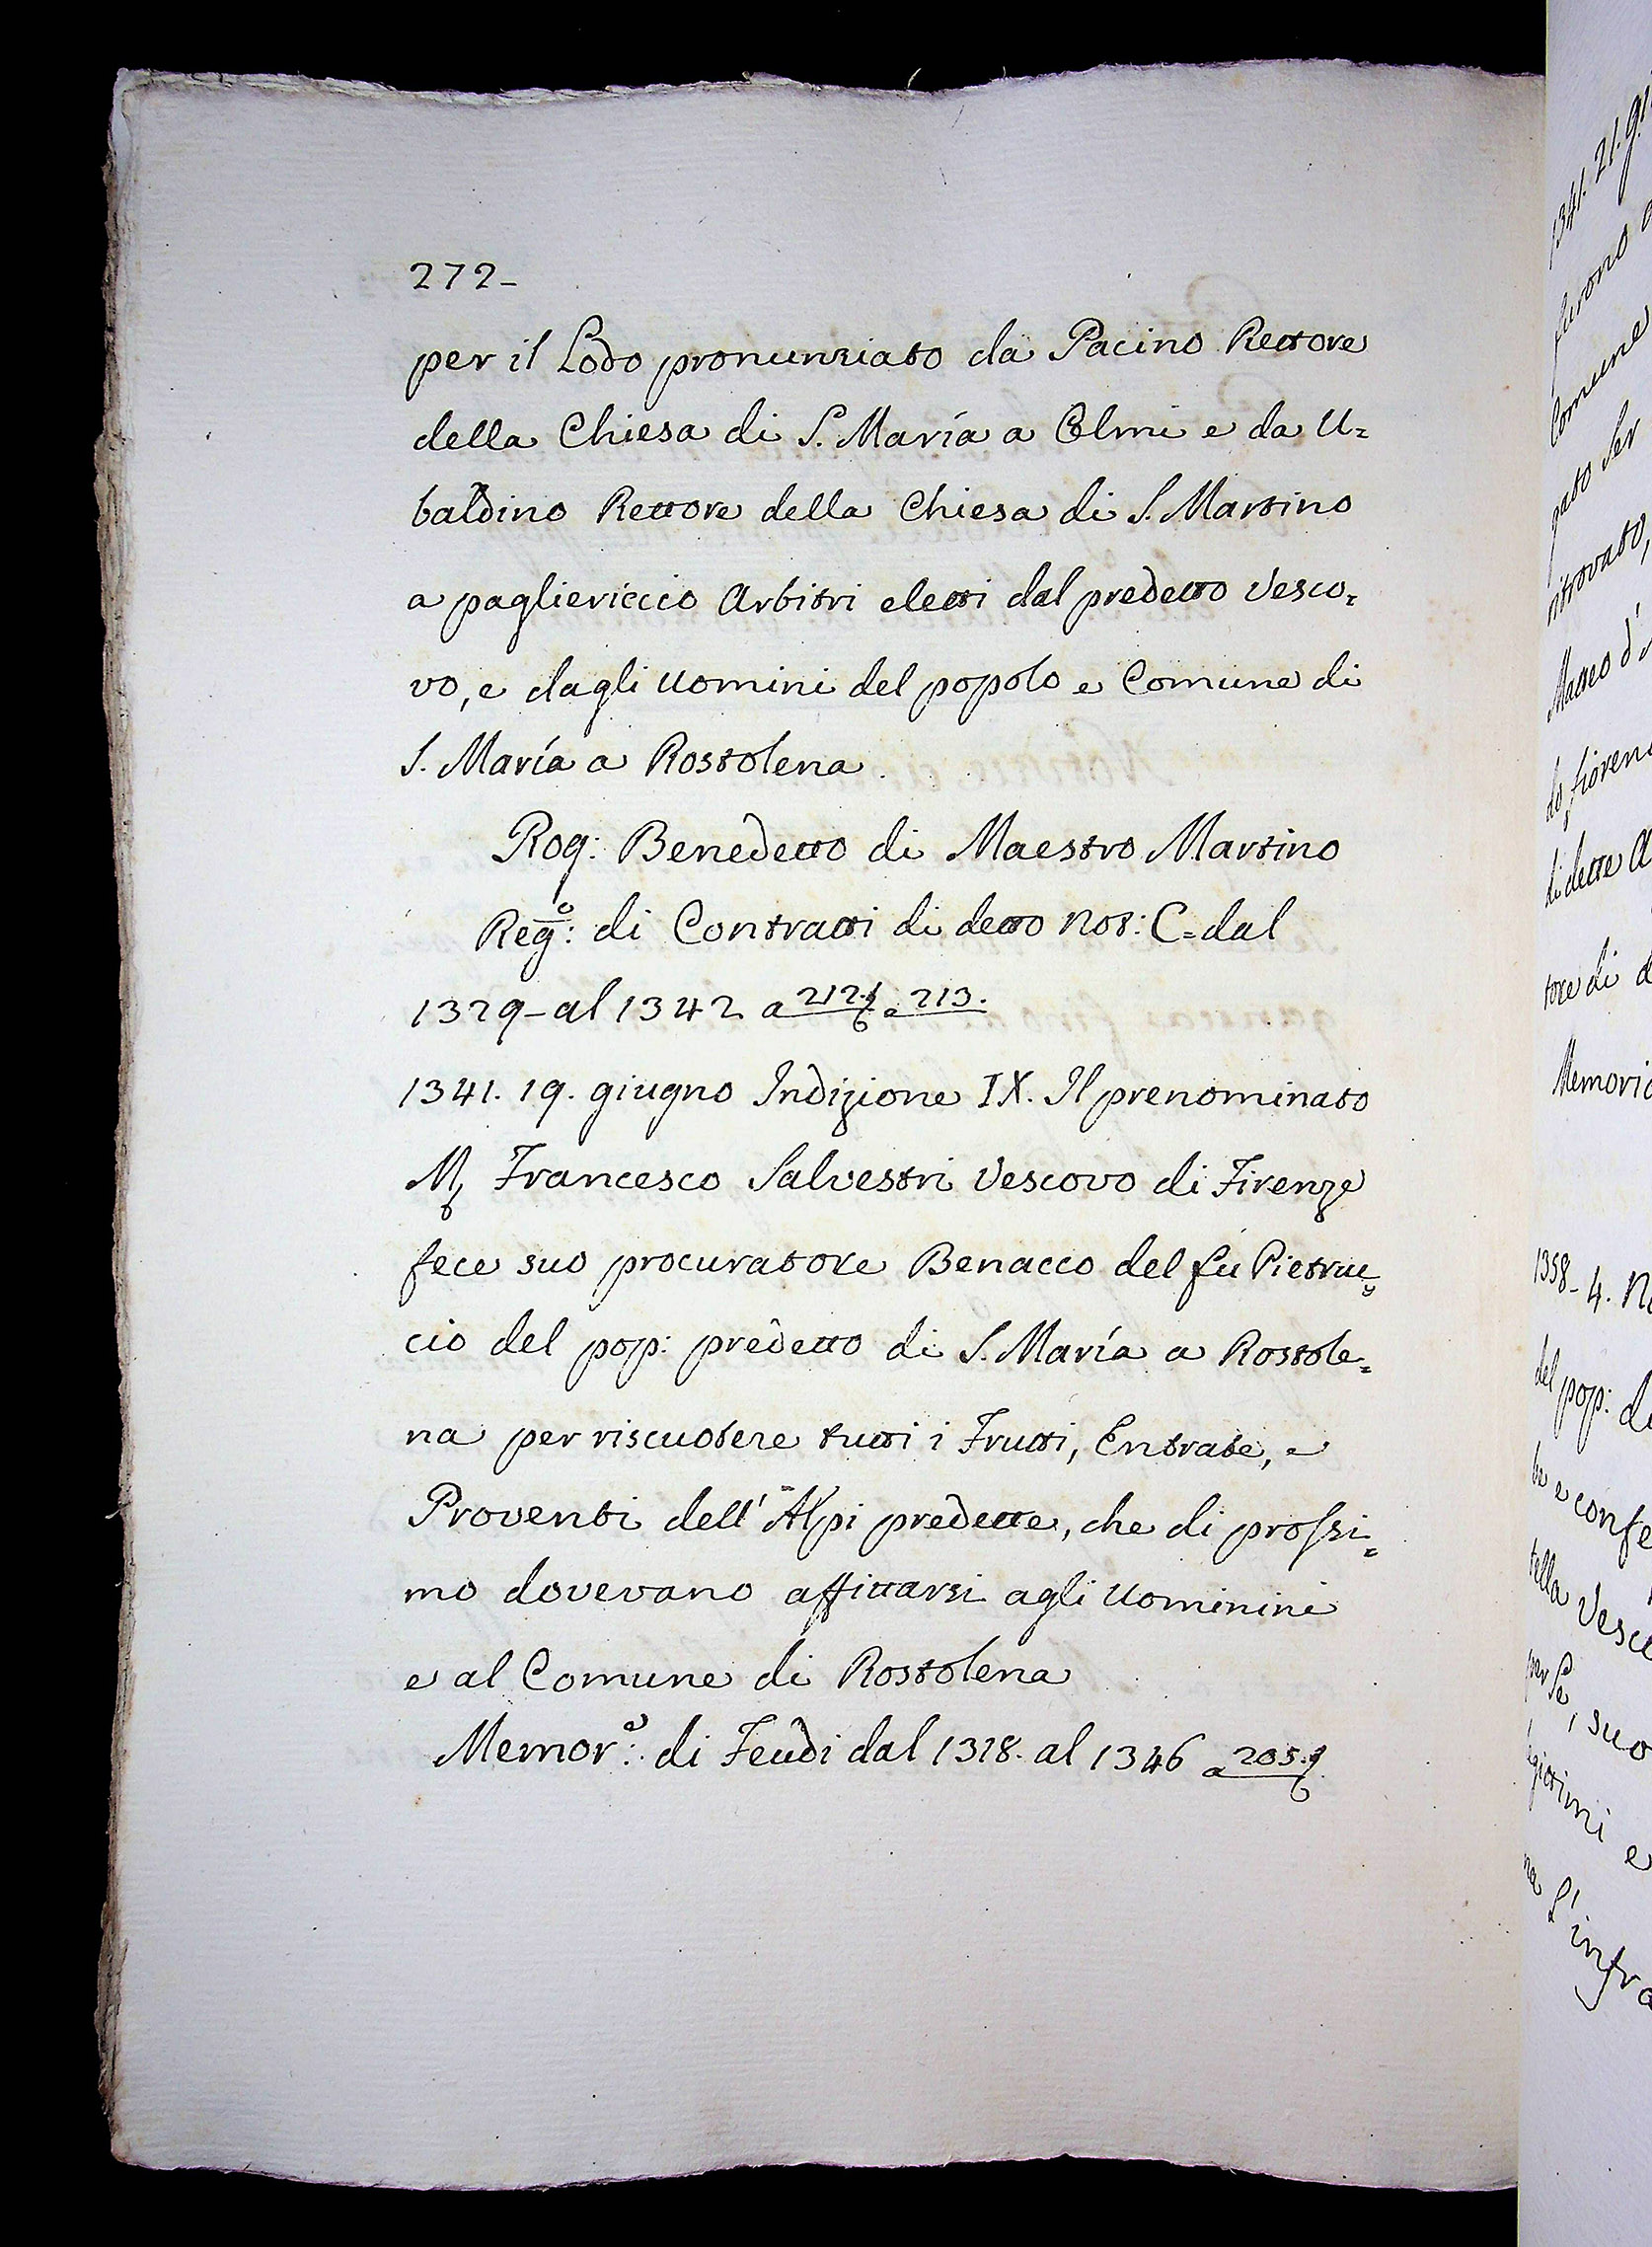 272-
per il Lodo pronunziato da Pacino Rettore
della Chiesa di S. María a Olmi e da U=
baldino Rettore della Chiesa di S. Martino
a pagliericcio Arbitri eletti dal predetto Vesco=
vo, e dagli Uomini del popolo e Comune di
S. María a Rostolena.
Rog: Benedetto di Maestro Martino
Reg.º: di Contratti di detto Not: C= dal
1329- al 1342 a 212. e 213.
1341. 19. giugno Indizione IX. Il prenominato
M. Francesco Salvestri Vescovo di Firenze
fece suo procuratore Benacco del fu Pietruc=
cio del pop: predetto di S. María a Rostole=
na per riscuotere tutti i Frutti, Entrate, e
Proventi dell' Alpi predette, che di prossi=
mo dovevano affittarsi agli Uominini
e al Comune di Rostolena
Memor.e: di Feudi dal 1318. al 1346 a 205.
1341. 21. gi
furono
Comune
pato Ser
ritrovato,
Matteo di
do fioren
di dette A
tore di d
Memori
1358- 4. No
del pop: di
be e confe
tella Vesco
per Se, suo
gittimi e
na L' infra